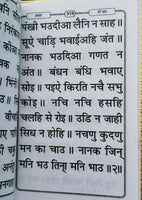 ३१३
पंखी भउदीआ लैनि न साह॥
सूऐ चाड़ि भवाईअहि जंत॥
नानक भउदिआ गणत न
अंत॥ बंधन बंधि भवाए
सोइ॥ पइऐ किरति नचै सभु
कोइ॥ नचि नचि हसहि
चलहि से रोइ॥ उडि न जाही
सिध न होहि॥ नचणु कुदणु
मन का चाउ॥ नानक जिन्
मनि भउ तिना् मनि भाउ॥२॥